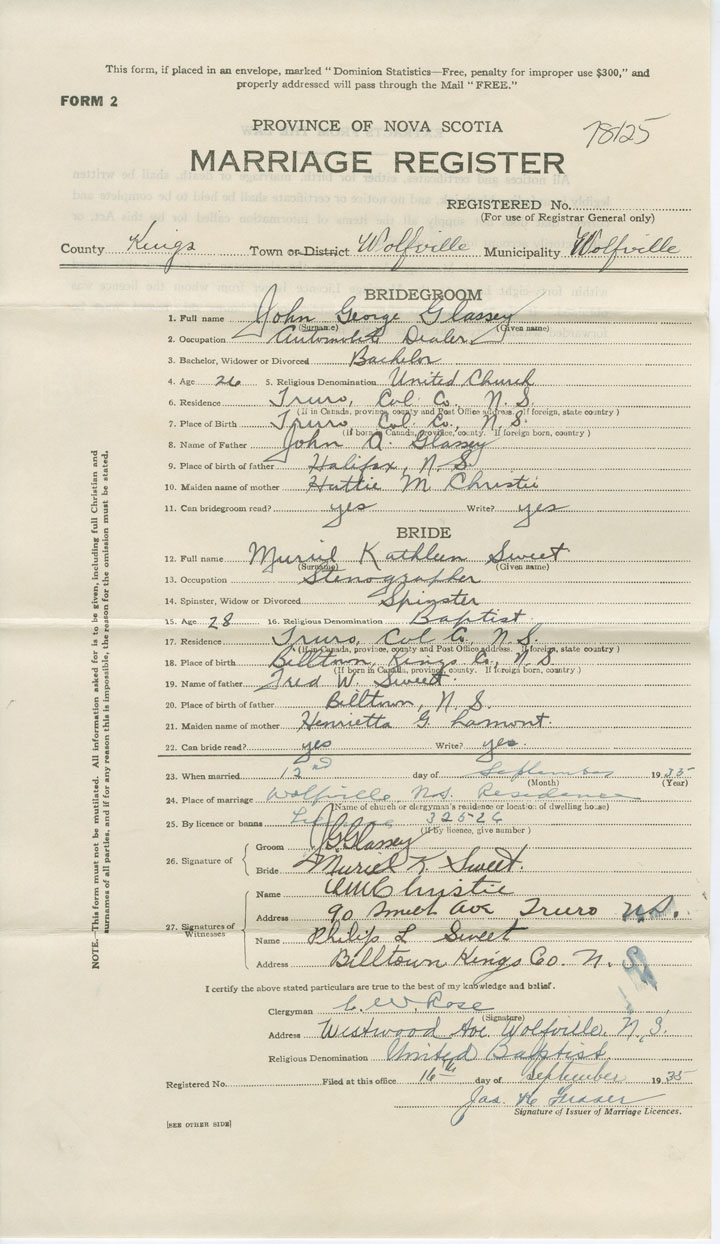 This form, if placed in an envelope, marked " Dominion Statistics—Free, penalty for improper use $300," and
properly addressed will pass through the Mail " FREE."
FORM 2
PROVINCE OF NOVA SCOTIA
78125
MARRIAGE REGISTER
REGISTERED No.
(For use of Registrar General only)
County Kings Town or District Wolfville Municipality Wolfville
BRIDEGROOM
1. Full name John George Glassey
(Surname) (Given name)
2. Occupation Automobile Dealer
3. Bachelor, Widower or Divorced Bachelor
4. Age 26 5. Religious Denomination United Church
6. Residence Truro, Col. Co. N. S.
(If in Canada, province, county and Post Office address. If foreign, state country)
7. Place of Birth Truro, Col. Co., N. S.
(If born in Canada, province, county. If foreign born, country)
8. Name of Father John A. Glassey
9. Place of birth of father Halifax, N. S.
10. Maiden name of mother Hattie M. Christie
11. Can bridegroom read? yes Write? yes
BRIDE
12. Full name Muriel Kathleen Sweet
(Surname) (Given name)
13. Occupation Stenographer
14. Spinster, Widow or Divorced Spinster
15. Age 28 16. Religious Denomination Baptist
17. Residence Truro, Col. Co., N. S.
(If in Canada, province, county and Post Office address. If foreign, state country)
18. Place of birth Billtown, Kings Co., N. S.
(If born in Canada, province, county. If foreign born, country)
19. Name of father Fred W. Sweet.
20. Place of birth of father Billtown, N. S.
21. Maiden name of mother Henrietta G. Lamont.
22. Can bride read? yes Write? yes.
23. When married 12nd day of September 1935
(Month) (Year)
24. Place of marriage Wolfville, N.S. Residence
(Name of church or clergyman's residence or location of dwelling house)
25. By licence or banns 32526
(If by licence, give number)
26. Signature of
Groom J G Glassey
Bride Muriel K. Sweet.
27. Signatures of Witnesses
Name Christie
Address 90 Ave Truro N.S.
Name Philip L Sweet
Address Billtown Kings Co. N. S.
I certify the above stated particulars are true to the best of my knowledge and belief.
Clergyman Rose
(Signature)
Address Westwood Ave Wolfville, N. S.
Religious Denomination United Baptist
Registered No. Filed at this office 16th day of September 1935
Jas. Fraser
Signature of Issuer of Marriage Licences.
[SEE OTHER SIDE]
NOTE.—This form must not be mutilated. All information asked for is to be given, including full Christian and
surnames of all parties, and if for any reason this is impossible, the reason for the omission must be stated.